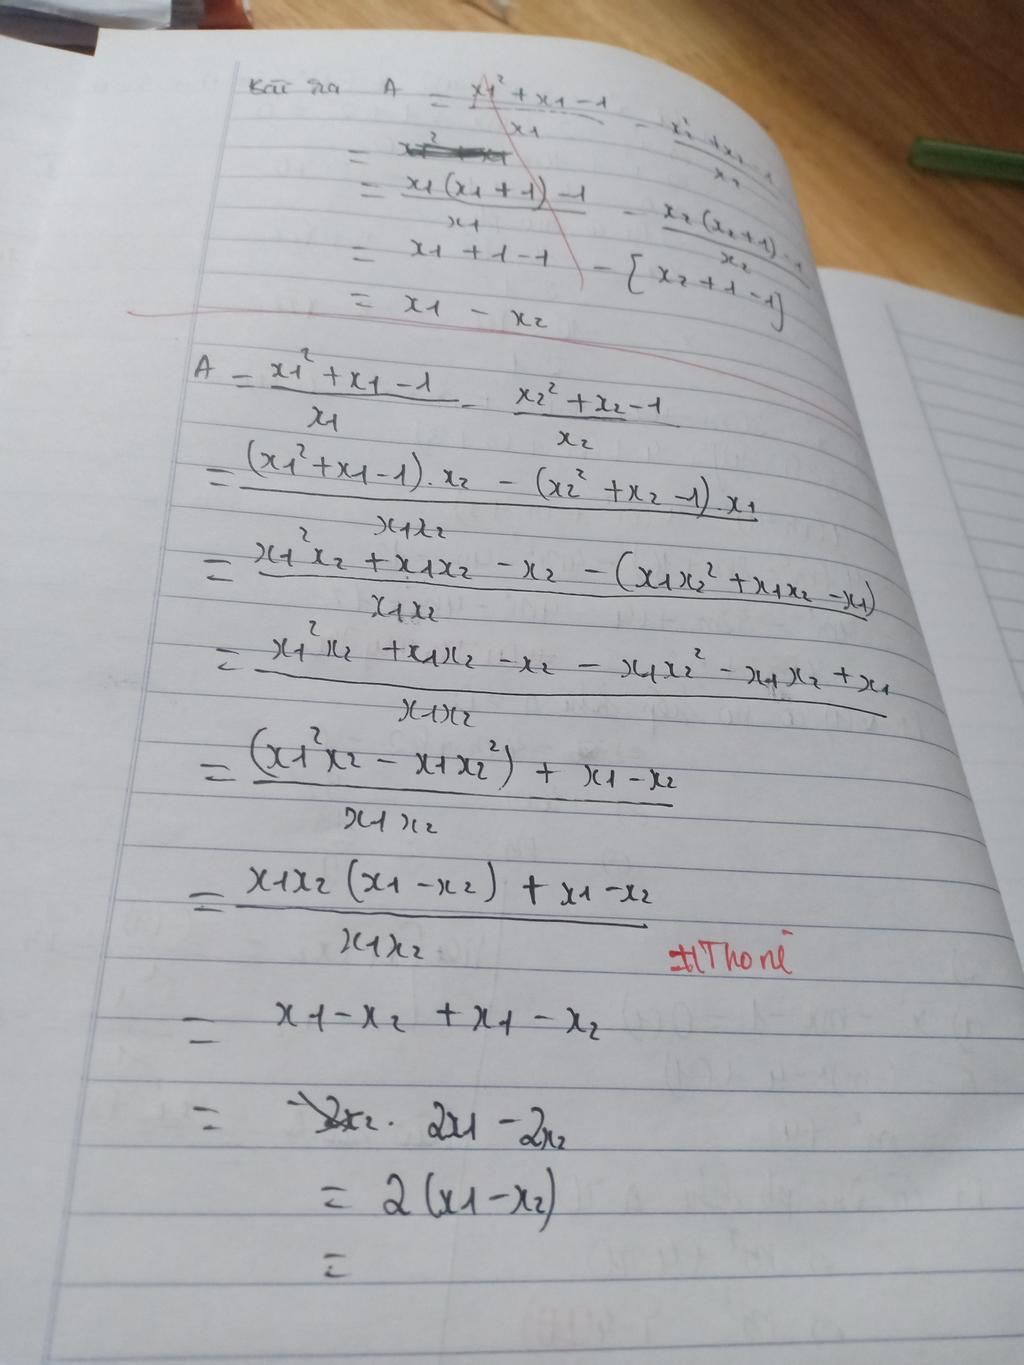 Bài ra A = x1² + x1 - 1 / x1 - x2² + x2 - 1 / x2
= x1(x1 + 1) - 1 / x1 - x2(x2 + 1) - 1 / x2
= x1 + 1 - 1 - [x2 + 1 - 1]
= x1 - x2
A = x1² + x1 - 1 / x1 - x2² + x2 - 1 / x2
= (x1² + x1 - 1).x2 - (x2² + x2 - 1).x1 / x1x2
= x1²x2 + x1x2 - x2 - (x1x2² + x1x2 - x1) / x1x2
= x1²x2 + x1x2 - x2 - x1x2² - x1x2 + x1 / x1x2
= (x1²x2 - x1x2²) + x1 - x2 / x1x2
= x1x2(x1 - x2) + x1 - x2 / x1x2
= x1 - x2 + x1 - x2
= 2x1 - 2x2
= 2(x1 - x2)
=